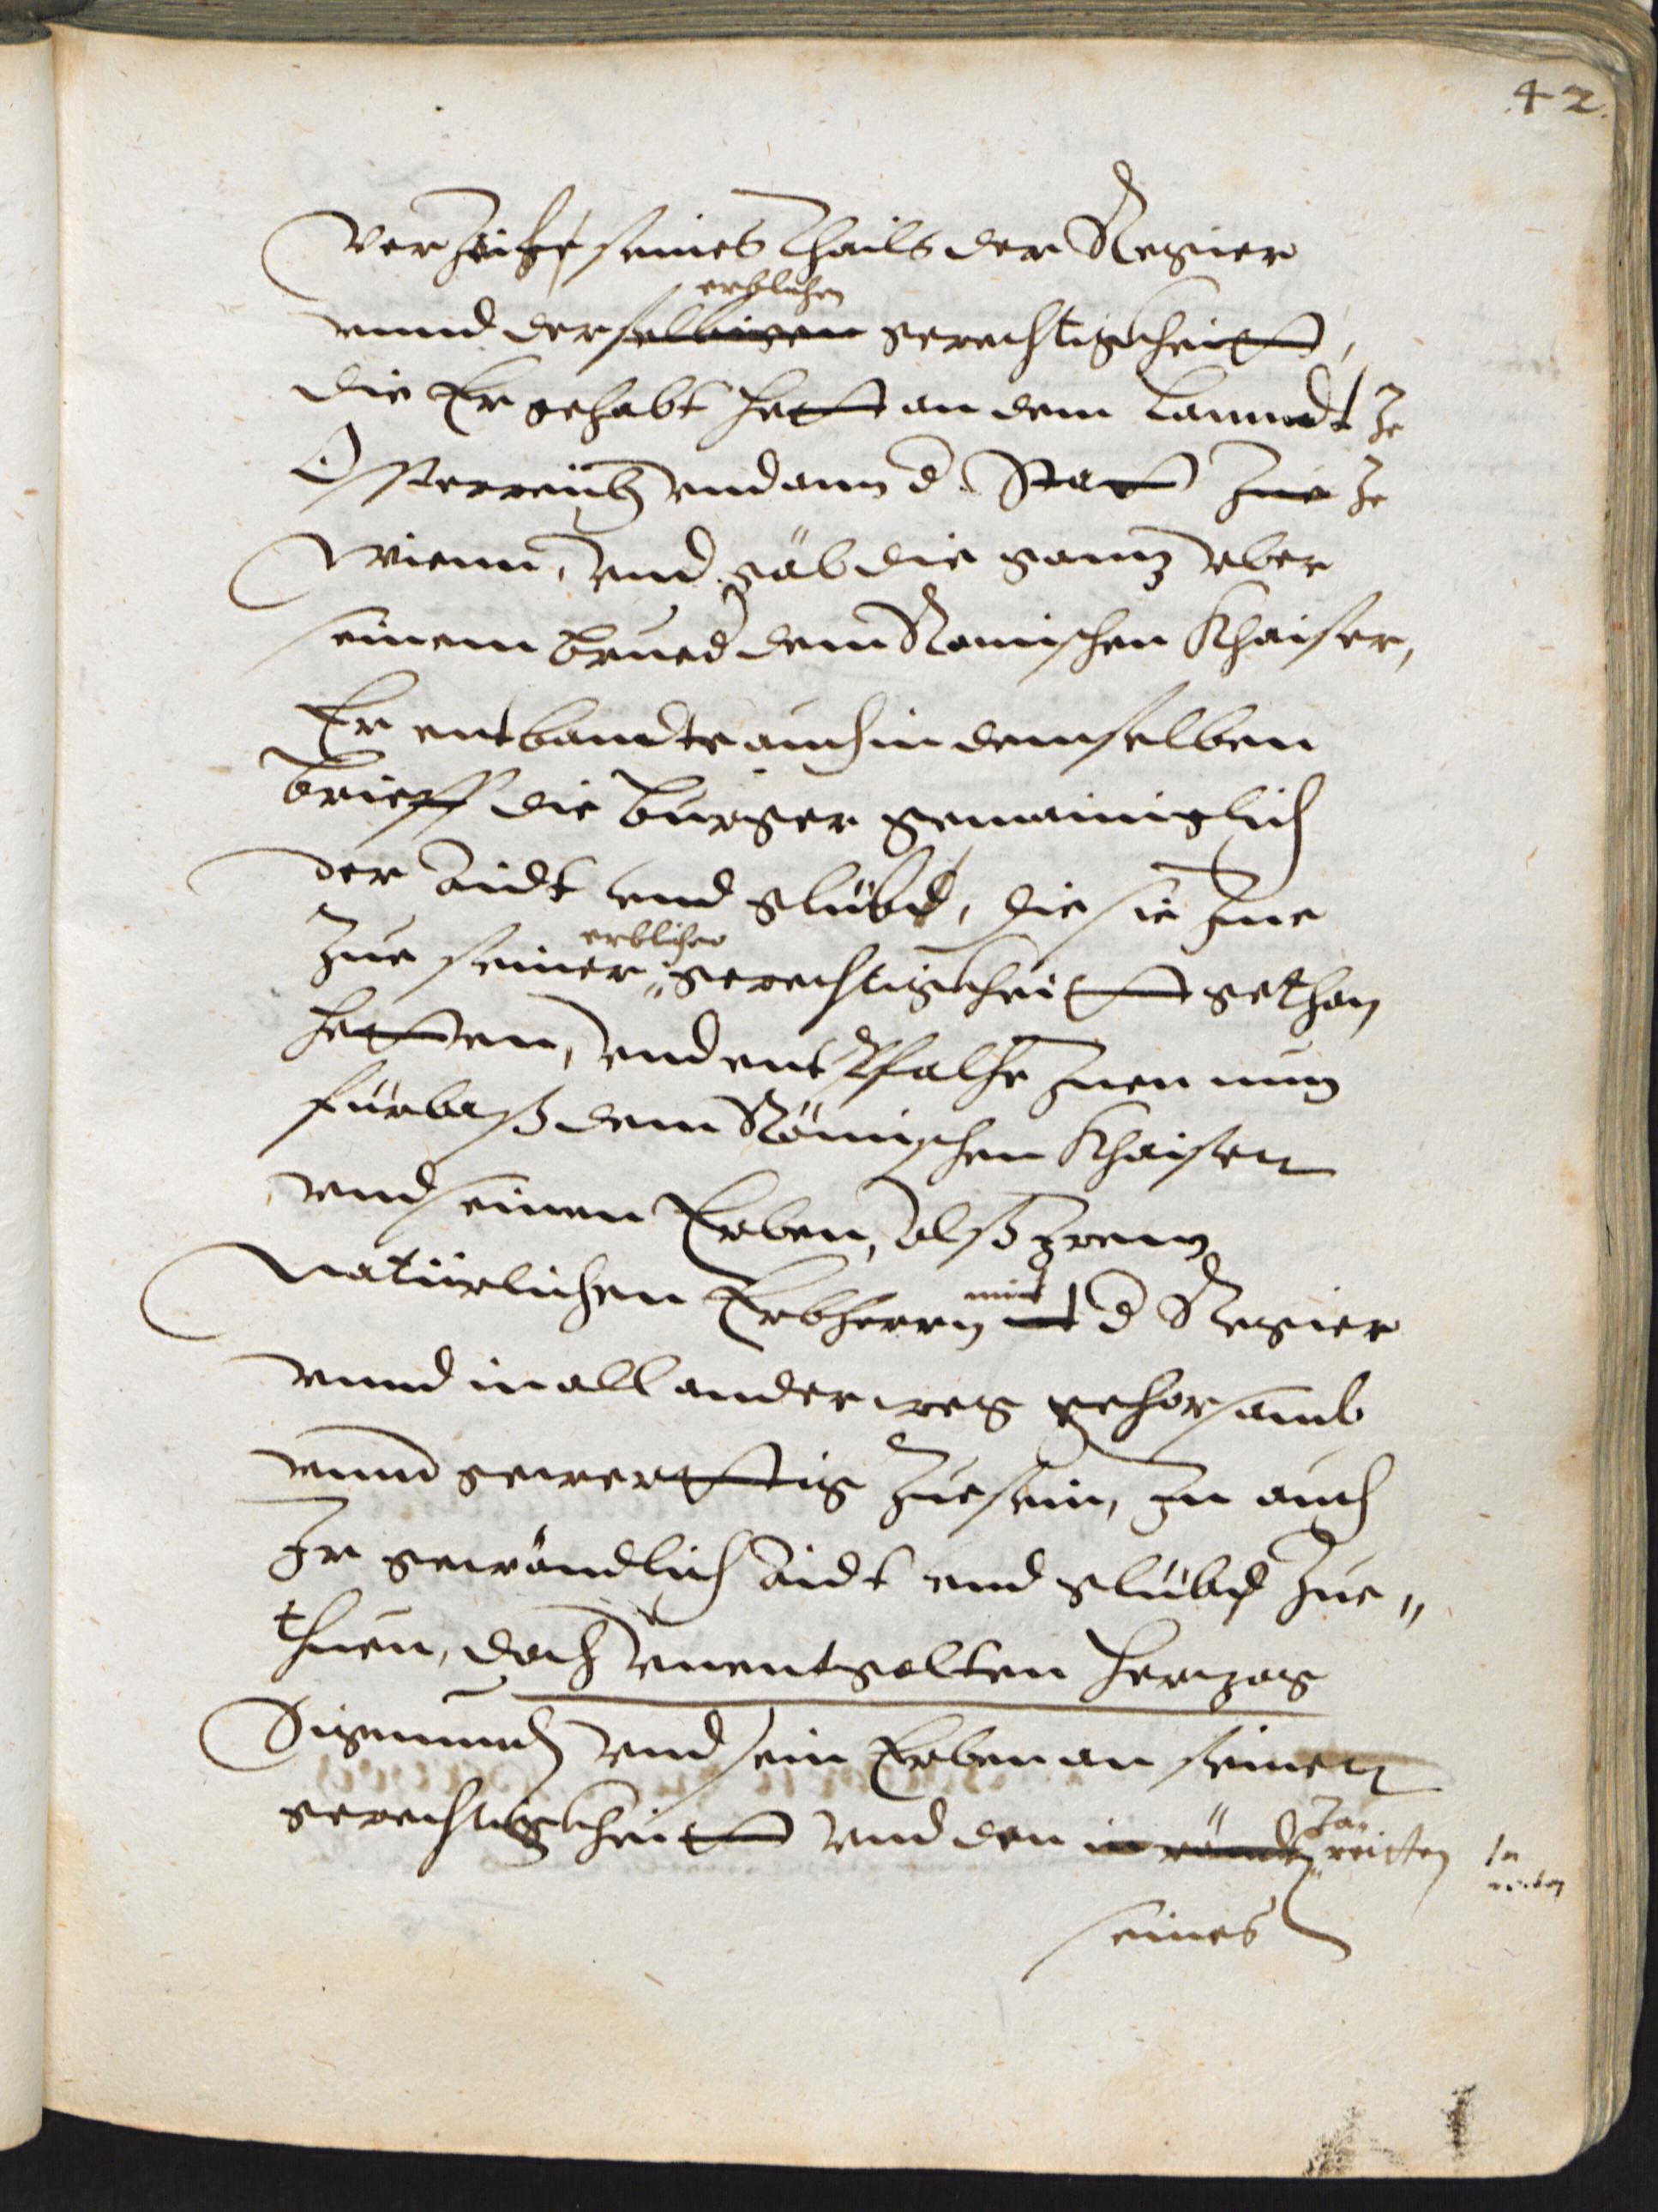 42.
Verzihe seines Thails der Regier
vnnd derselbigen erblichen gerechtigkheitt,
die Er gehabt hett an dem Lanndt Ze
Osterreich vnd ann d. Statt Zue Ze
Wienn, vnd gäb die gantz vber
seinem brued dem Romischen Khaiser,
Er entbandte auch in demselben
brieff die burger gemainiglich
der Aidt vnd glübd, die sie Jme
Zue seiner erblichen gerechtigkheitt gethan
hetten, vnd entpfalhe Jnen nun
fürbass dem Römischen Khaiser
vnd seinen Erben, alss Jrem
natürlichen Erbherrn mit d Regier
vnnd in all ander weg gehorsamb
vnnd gewerttig Zue sein, Jm auch
Jr gewöndlich Aidt vnd glübd Zue„
thuen, doch vnentgolten Hertzog
Sigmund vnd sein Erben an seiner
gerechtigkheitt vnd den
seines